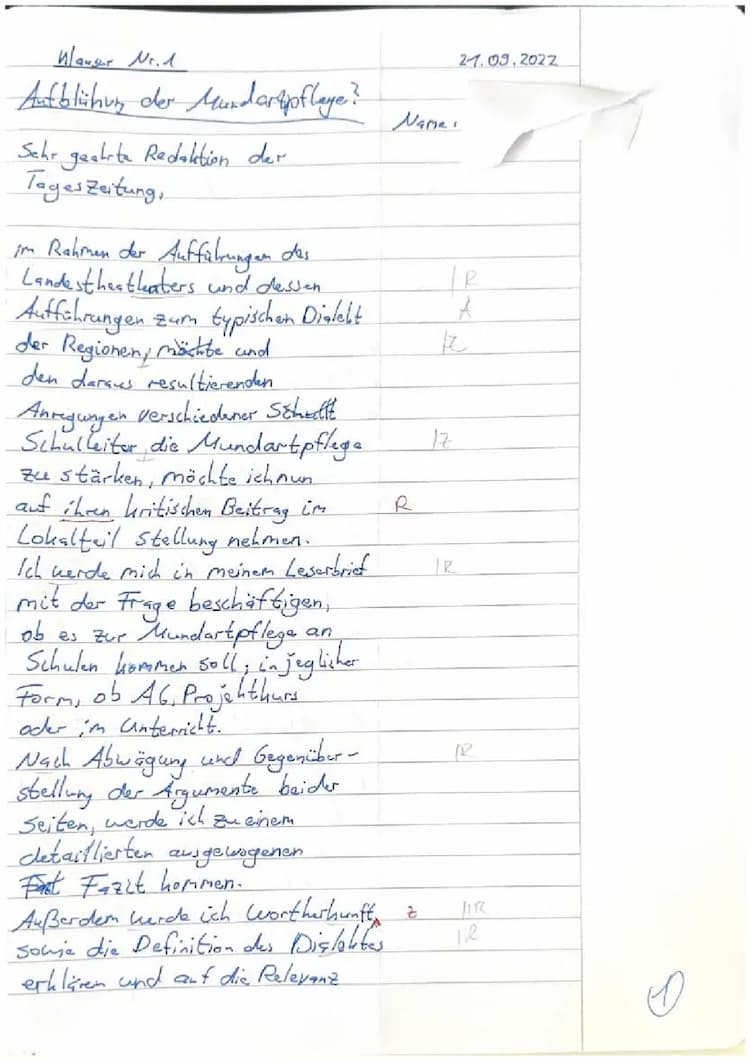 Klausur Nr. 1
21.09.2022
Aufblühung der Mundartpflege?
Name:
Sehr geehrte Redaktion der
Tageszeitung,
im Rahmen der Aufführungen des
Landestheathaters und dessen
R
Aufführungen zum typischen Dialekt
A
der Regionen, möchte und
Z
den daraus resultierenden
Anregungen verschiedener
Schulleiter, die Mundartpflege
Z
zu stärken, möchte ich nun
auf ihren kritischen Beitrag im
R
Lokalteil Stellung nehmen.
Ich werde mich in meinem Leserbrief
R
mit der Frage beschäftigen,
ob es zur Mundartpflege an
Schulen kommen soll, in jeglicher
Form, ob AG, Projektkurs
oder im Unterricht.
Nach Abwägung und Gegenüber-
R
stellung der Argumente beider
Seiten, werde ich zu einem
detaillierten ausgewogenen
Fazit kommen.
Außerdem werde ich Wortherkunft,
Z
R
sowie die Definition des Dialektes
R
erklären und auf die Relevanz
1